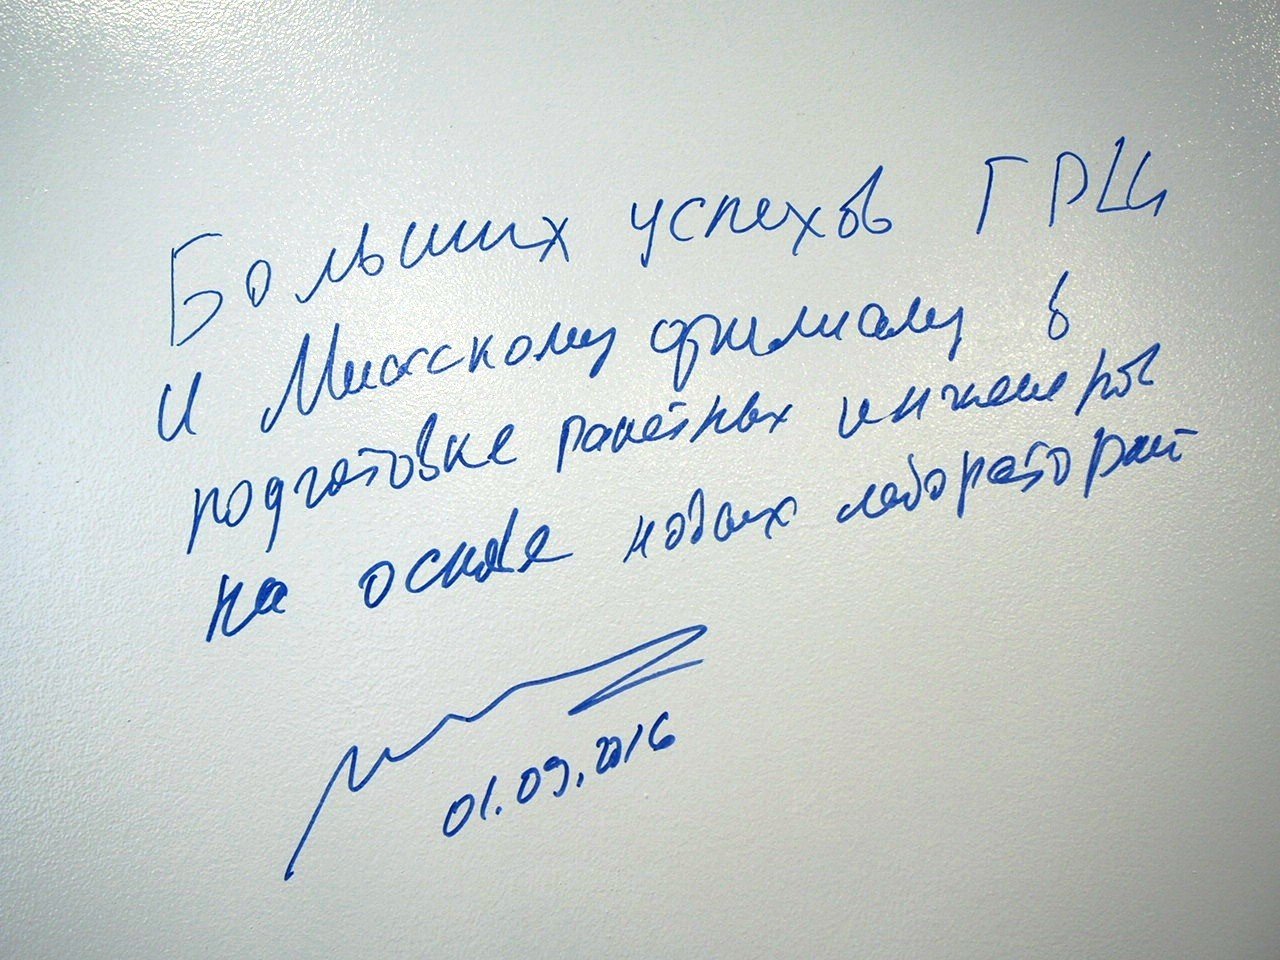 Больших успехов ГРЦ
и Миасскому филиалу в
подготовке ракетных инженеров
на основе новых лабораторий
01.09.2016